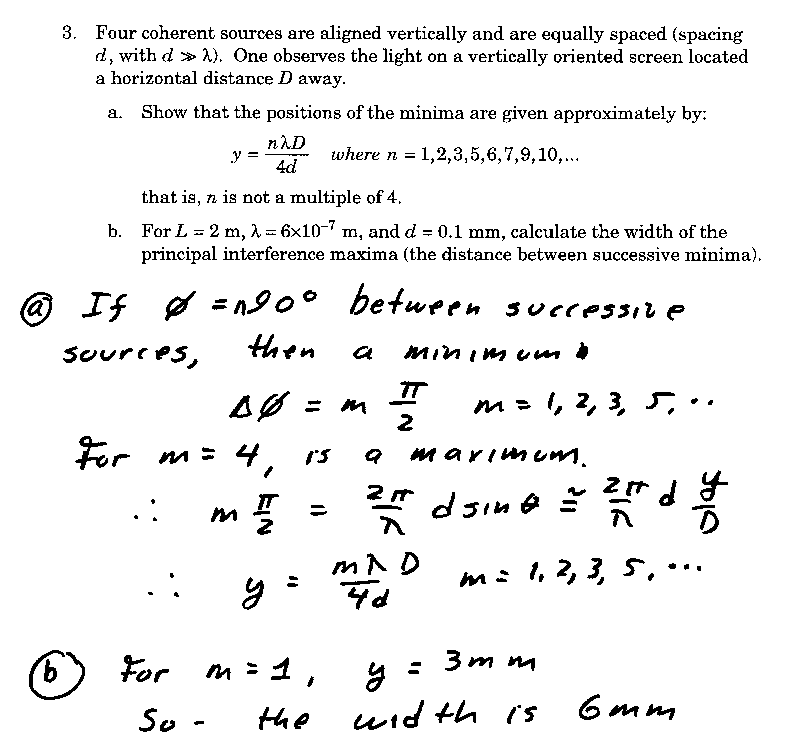 3. Four coherent sources are aligned vertically and are equally spaced (spacing
d, with d ≫ λ). One observes the light on a vertically oriented screen located
a horizontal distance D away.
a. Show that the positions of the minima are given approximately by:
y = nλD/4d where n = 1,2,3,5,6,7,9,10,...
that is, n is not a multiple of 4.
b. For L = 2 m, λ = 6×10⁻⁷ m, and d = 0.1 mm, calculate the width of the
principal interference maxima (the distance between successive minima).
ⓐ If ø = n90° between successive
sources, then a minimum
Δø = m π/2 m = 1, 2, 3, 5, ..
For m = 4, is a maximum.
∴ m π/2 = 2π/λ d sin θ ≅ 2π/λ d y/D
∴ y = mλD/4d m = 1, 2, 3, 5, ...
ⓑ For m = 1, y = 3 mm
So - the width is 6 mm